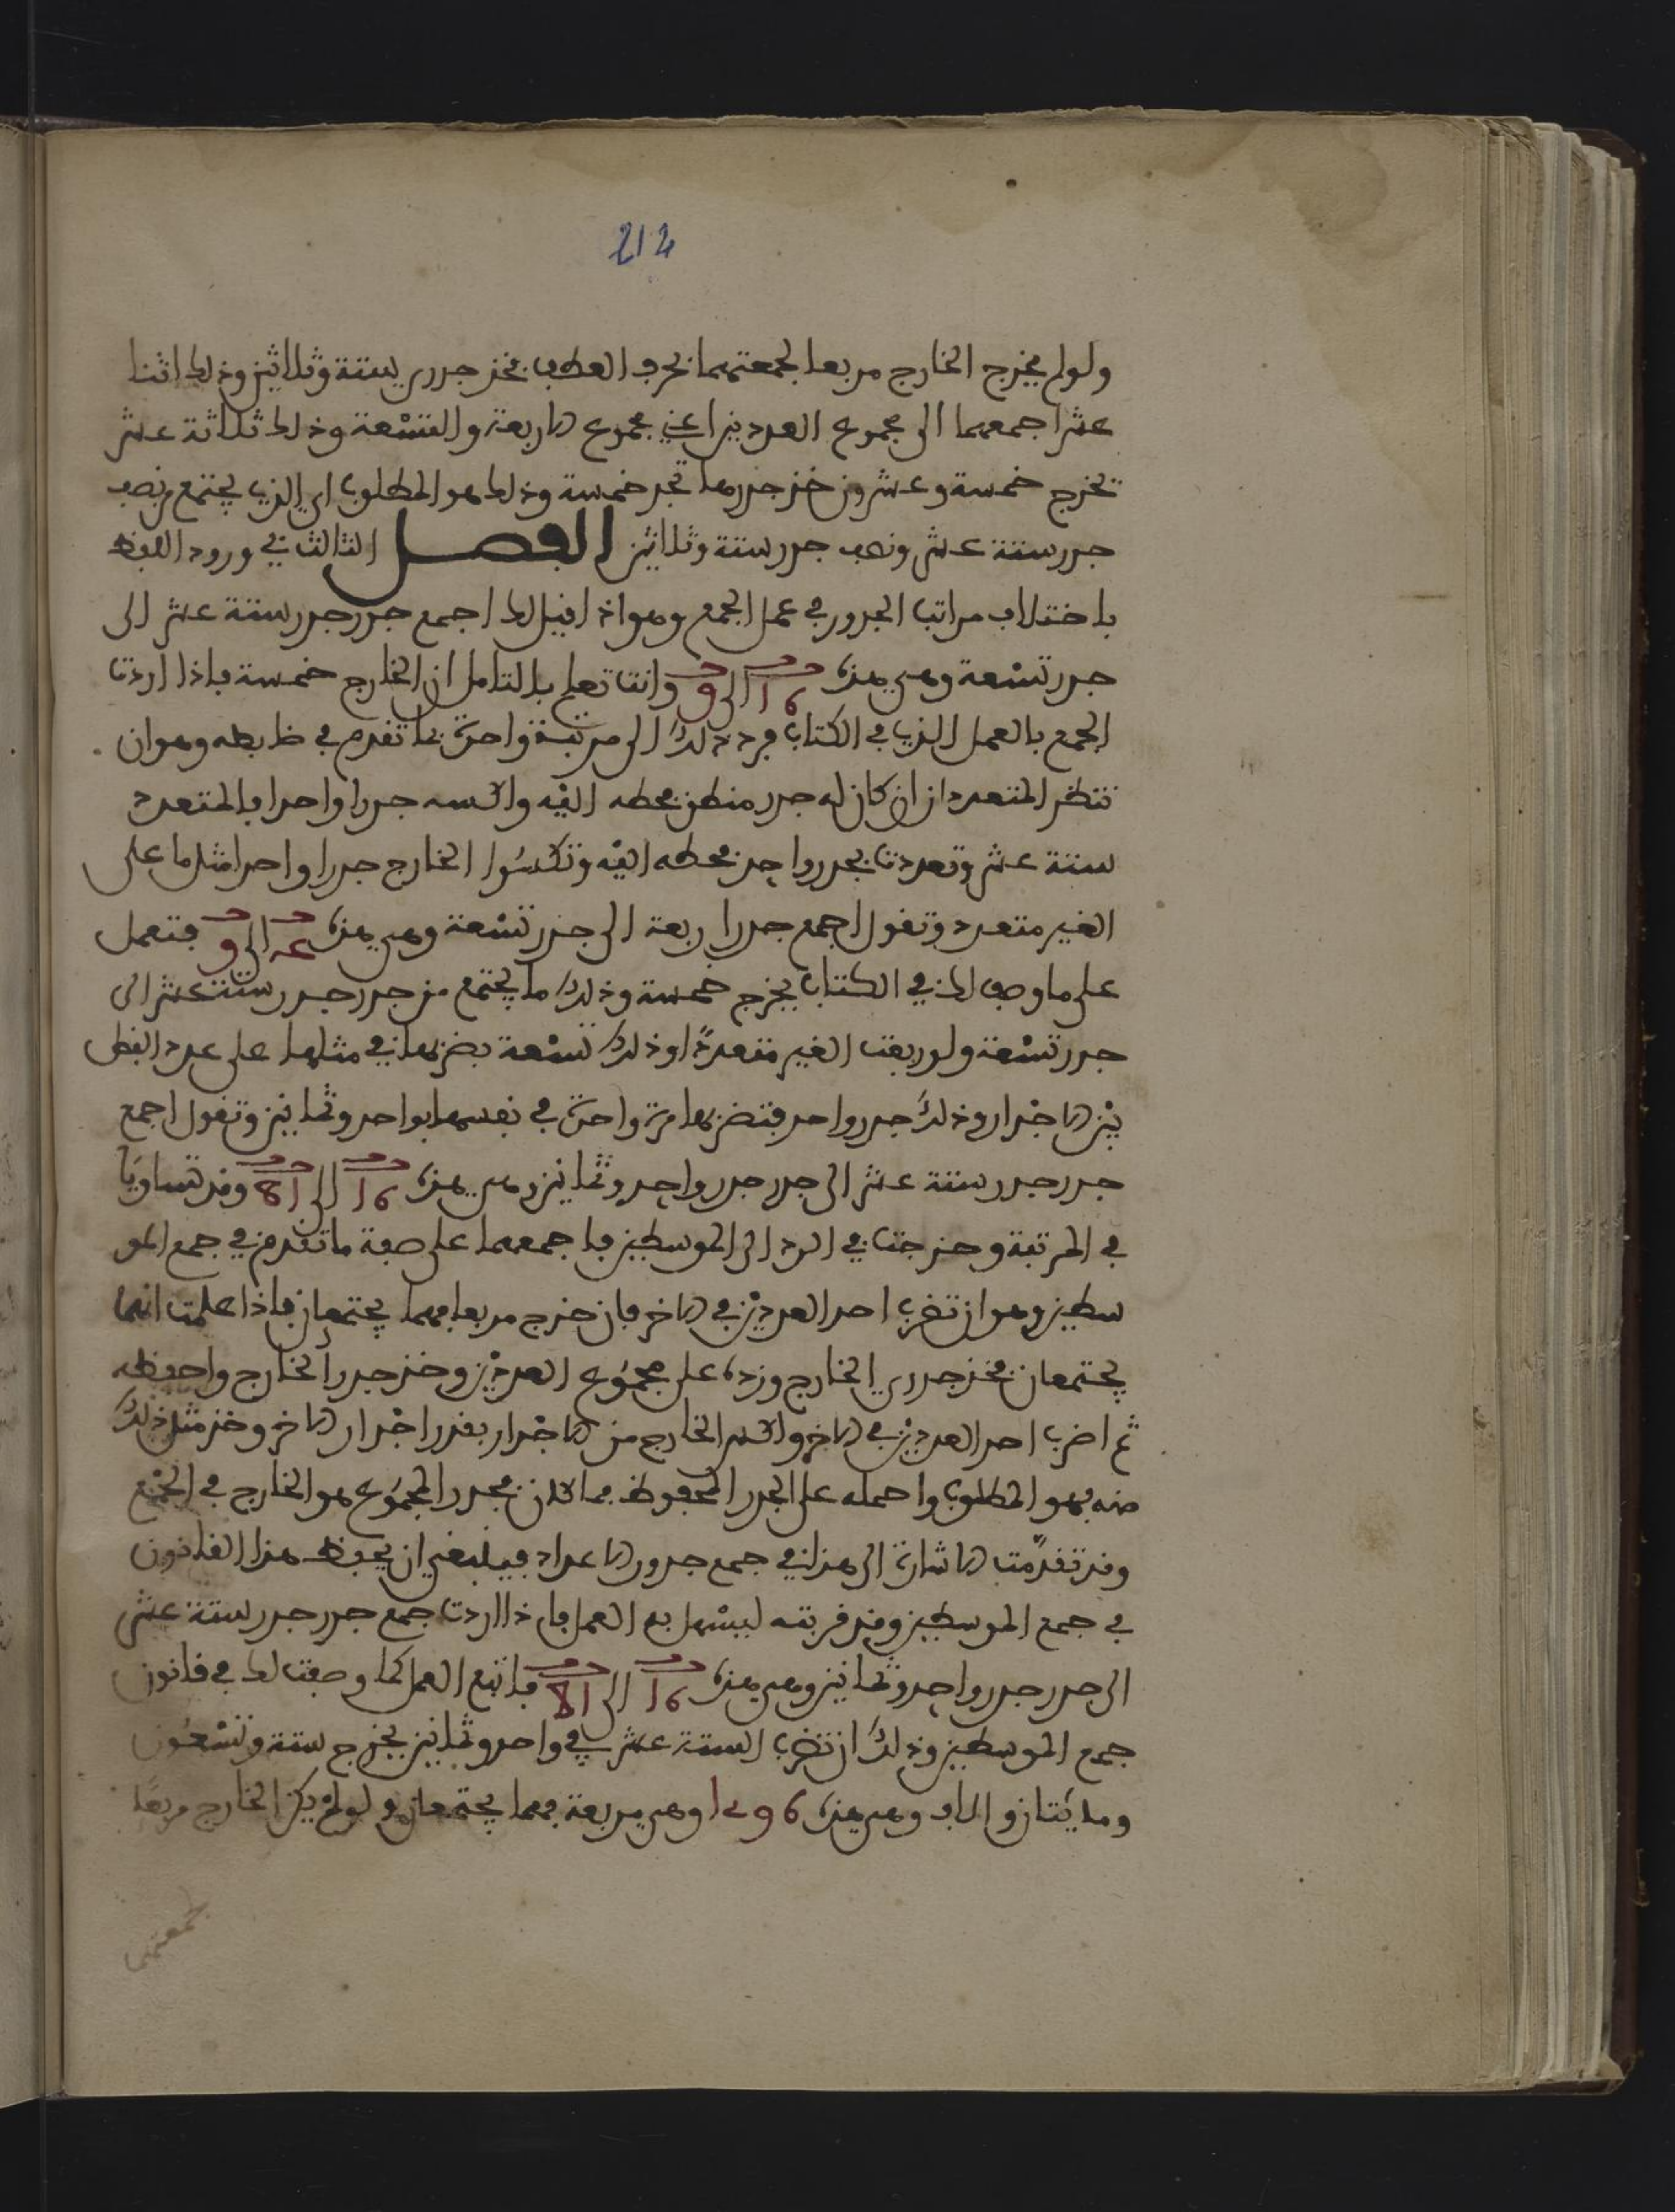 212
ولولم يخرج الخارج مربعا لجمعتهما بحرف العطف فخذ جذري ستة وثلاثين وذلك اثنا
عشر اجمعهما الى مجموع العددين اعني مجموع الاربعة والتسعة وذلك ثلاثة عشر
تخرج خمسة وعشرون خذ جذرها تجد خمسة وذلك هو المطلوب اي الذي يجتمع من نصف
جذر ستة عشر ونصف جذر ستة وثلاثين الفصل الثالث في ورود اللفظ
باختلاف مراتب الجذور في عمل الجمع وهو اذا قيل لك اجمع جذر جذر ستة عشر الى
جذر تسعة وهي هذه 16 الى 9 وانت تعلم بالتامل ان الخارج خمسة فاذا اردت
الجمع بالعمل الذي في الكتاب فرد ذلك الى مرتبة واحدة بما تقدم في ضابطه وهو ان
تنظر المتعدد ان كان له جذر منطق فحطه اليه واكسه جذرا واحدا فالمتعدد
ستة عشر وتعددت بجذر واحد فحطه اليه وتكسوا الخارج جذرا واحدا مثل ما على
الغير متعدد وتقول اجمع جذر اربعة الى جذر تسعة وهي هذه 4 الى 9 فتعمل
على ما وصف لك في الكتاب يخرج خمسة وذلك ما يجتمع من جذر جذر ستة عشر الى
جذر تسعة ولو رفعت الغير متعددة وذلك تسعة بضربها في مثلها على عدد الفضل
بين الاجذار وذلك جذر واحد فتضربها مرة واحدة في نفسها بواحد وثمانين وتقول اجمع
جذر جذر ستة عشر الى جذر جذر واحد وثمانين وهي هذه 16 الى 81 وقد تساويا
في المرتبة وخرجت في الرد الى الموسطين فاجمعهما على صفة ما تقدم في جمع المو
سطين وهو ان تضرب احد العددين في الاخر فان خرج مربعا فهما يجتمعان فاذا علمت انهما
يجتمعان فخذ جذري الخارج وزده على مجموع العددين وخذ جذر الخارج واحفظه
ثم اضرب احد العددين في الاخر واكس الخارج من الاجذار بقدر اجذار الاخر وخذ مثل ذلك
منه فهو المطلوب واحمله على الجذر المحفوظ فما كان فجذر المجموع هو الخارج في الجمع
وقد تقدمت الاشارة الى هذا في جمع جذور الاعداد فينبغي ان يحفظ هذا القانون
في جمع الموسطين وقد قربته ليسهل به العمل فاذا اردت جمع جذر جذر ستة عشر
الى جذر جذر واحد وثمانين وهي هذه 16 الى 81 فاتبع العمل كما وصفت لك في قانون
جمع الموسطين وذلك ان تضرب الستة عشر في واحد وثمانين يخرج ستة وتسعون
ومائتان والف وهي هذه 1296 وهي مربعة فهما يجتمعان ولو لم يكن الخارج مربعا
لجمعتهما